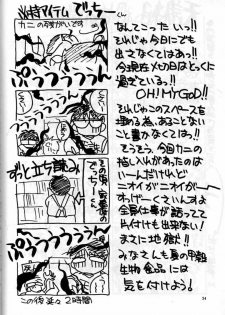 なんてこったいっ!!
それじゃら今日にでも
出さなくてはなっ!!
今現在〆切日はとっくに
過ぎている。!!
OH!MY GOD!!
それじゃこのスペースを
埋める為、あることない
こと書かなくては!!
そうそう、今日カニの
差し入れがあったのは
いーんだけれど
ニオイがニオイがー
すっげーくさいんすよ
全員仕事が詰ってて
片付けも出来ない!
まさに地獄だ!!
みなさんも夏の甲殻
生物食品には
気を付けよう!
アイテム でっちー
カニの
ぷぅうううぅん
ずっと立ち読み
その頃
でっちー
ぷぅうううううん
この後楽々2時間